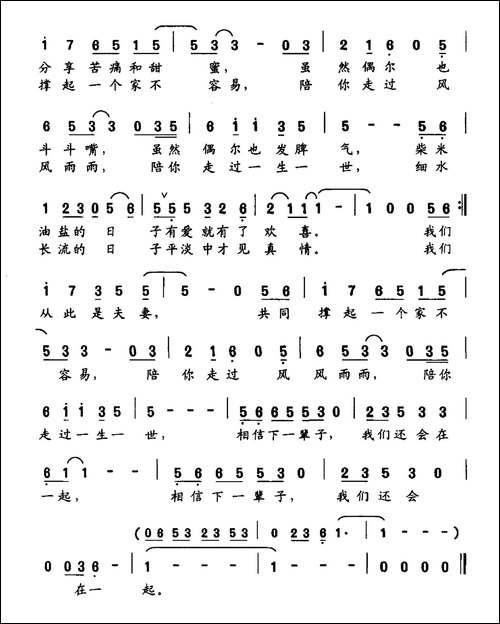 i 7 6 5 1 5 | 5 3 3 - 0 3 | 2 1 6 0 5 |
分享苦痛和甜 蜜， 虽 然偶尔 也
撑起一个家不 容易， 陪 你走过 风
6 5 3 3 0 3 5 | 6 i i 3 5 | 5 - - 5 6 |
斗斗嘴， 虽然 偶尔也发脾 气， 柴米
风雨雨， 陪你 走过一生一 世， 细水
1 2 3 0 5 6 | 5 5 5 3 2 6 | 2 1 1 1 | 1 0 0 5 6 :|
油盐的 日 子有爱就有了欢喜。 我们
长流的 日 子平淡中才见真情。 我们
i 7 3 5 5 | 5 - 0 5 6 | i 7 6 5 1 5 |
从此是夫妻， 共同 撑起一个家不
5 3 3 - 0 3 | 2 1 6 0 5 | 6 5 3 3 0 3 5 |
容易， 陪 你走过 风 风雨雨， 陪你
6 i i 3 5 | 5 - - - | 5 6 6 5 5 3 0 | 2 3 5 3 |
走过一生一 世， 相信下一辈子， 我们还会在
6 1 1 - - | 5 6 6 5 5 3 0 | 2 3 5 3 0 |
一起， 相信下一辈子， 我们还会
(0 6 5 3 2 3 5 3 | 0 2 3 6 1· | 1 - - -)
0 0 3 6 - | 1 - - - | 1 - - - | 0 0 0 0 ‖
在一 起。